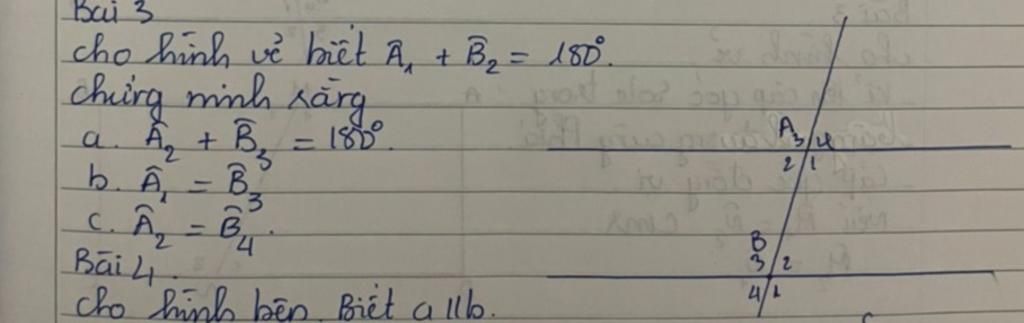 Bài 3
cho hình vẽ biết Â₁ + B̂₂ = 180°.
chứng minh rằng
a. Â₂ + B̂₃ = 180°.
b. Â₁ = B̂₃
c. Â₂ = B̂₄.
Bài 4.
cho hình bên. Biết a // b.
A 3 4
2 1
B
3 2
4 1